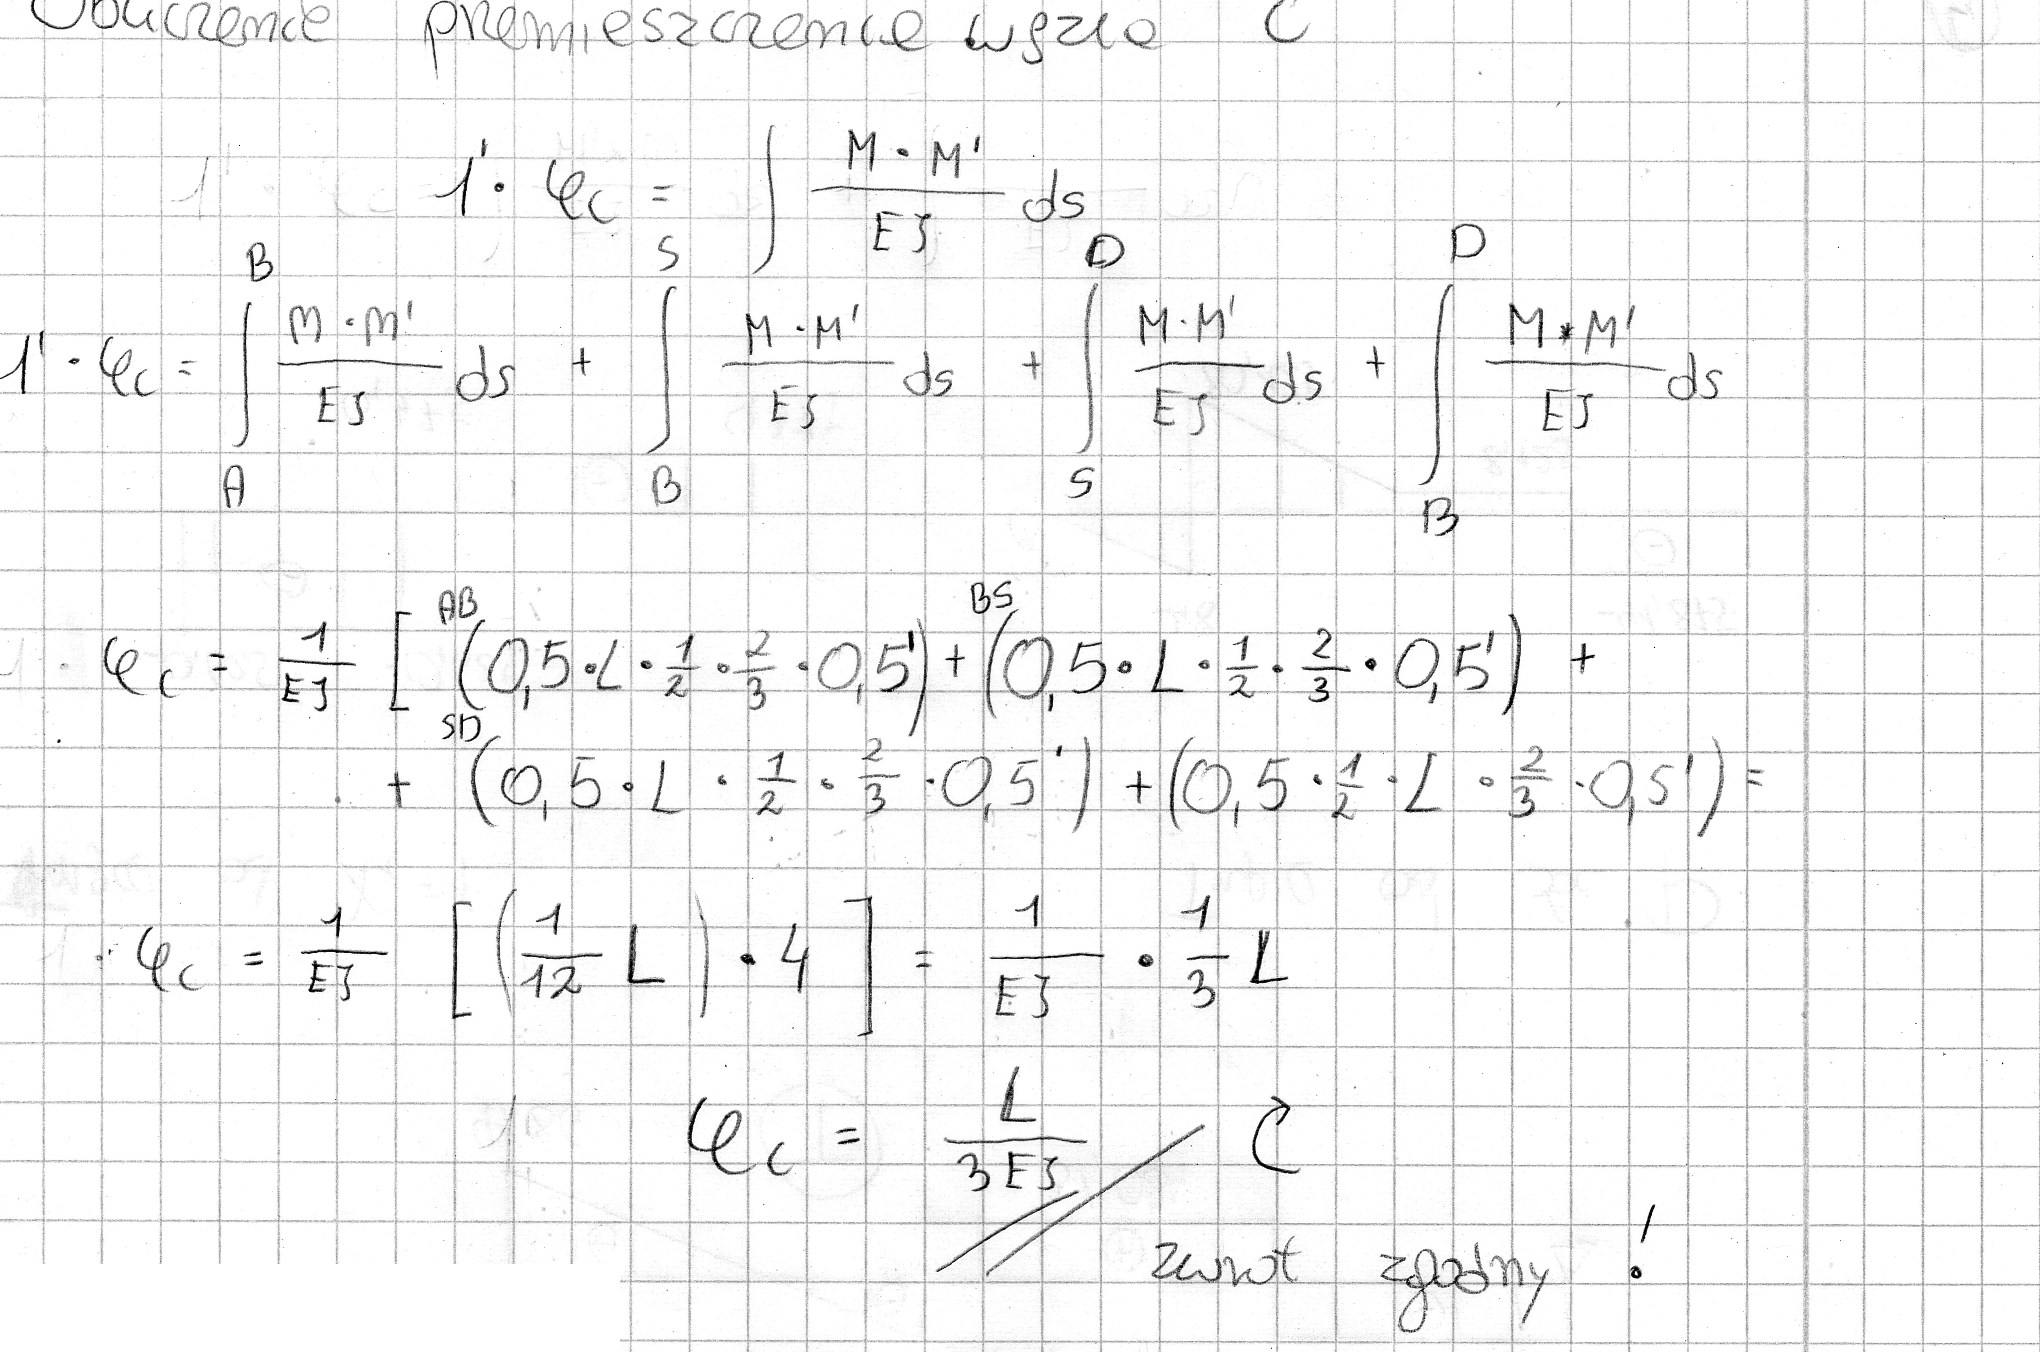 Obliczenie przemieszczenie węzła C
1' · φc = ∫ M · M' / EJ ds
1' · φc = ∫_A^B M · M' / EJ ds + ∫_B^S M · M' / EJ ds + ∫_S^D M · M' / EJ ds + ∫_B^D M * M' / EJ ds
φc = 1/EJ [ AB (0,5 · L · 1/2 · 2/3 · 0,5') + BS (0,5 · L · 1/2 · 2/3 · 0,5') +
+ SD (0,5 · L · 1/2 · 2/3 · 0,5') + (0,5 · 1/2 · L · 2/3 · 0,5') =
φc = 1/EJ [ (1/12 L) · 4 ] = 1/EJ · 1/3 L
φc = L / 3EJ
zwrot zgodny !